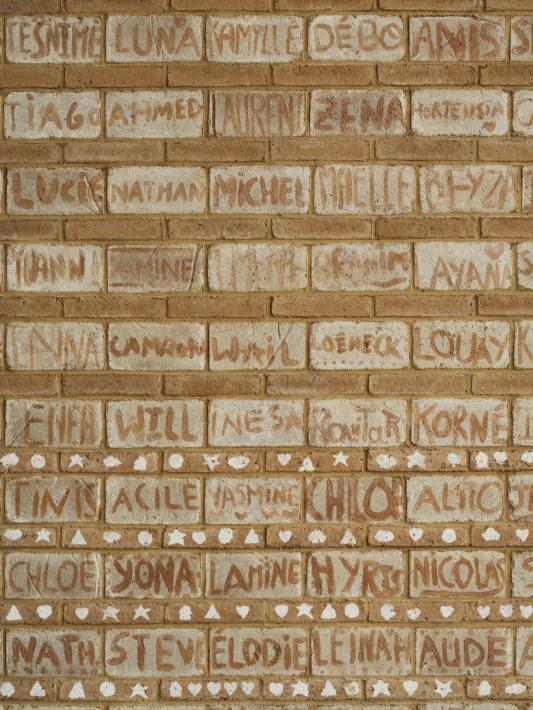 TESNIME LUNA KAMYLLE DÉBO ANIS
TIAGO AHMED LAURENT ZENA HORTENSIA
LUCIE NATHAN MICHEL MAELLE BEYZA
YOANN AMINE IBRAHIM AYANA
INNA CAMRON WAIL LOEMECK LOUAY
WILL INESA KORNÉ
TINIS ACILE YASMINE CHLOÉ
CHLOÉ YONA LAMINE HYRIS NICOLAS
NATH STEVE ÉLODIE LEINAH AUDE